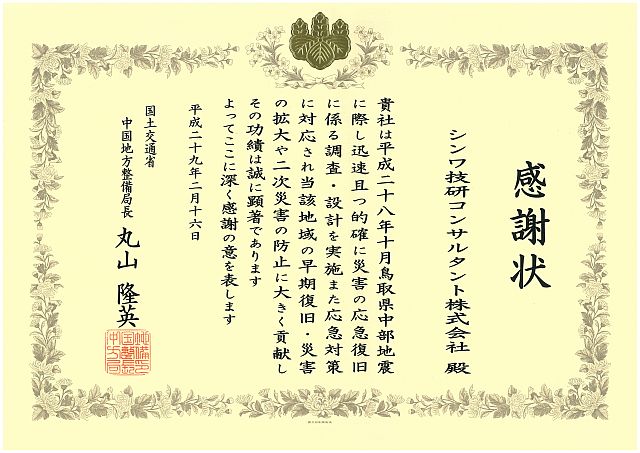 感謝状
シンワ技研コンサルタント株式会社 殿
貴社は平成二十八年十月鳥取県中部地震
に際し迅速且つ的確に災害の応急復旧
に係る調査・設計を実施また応急対策
に対応され当該地域の早期復旧・災害
の拡大や二次災害の防止に大きく貢献し
その功績は誠に顕著であります
よってここに深く感謝の意を表します
平成二十九年二月十六日
国土交通省
中国地方整備局長 丸山 隆英